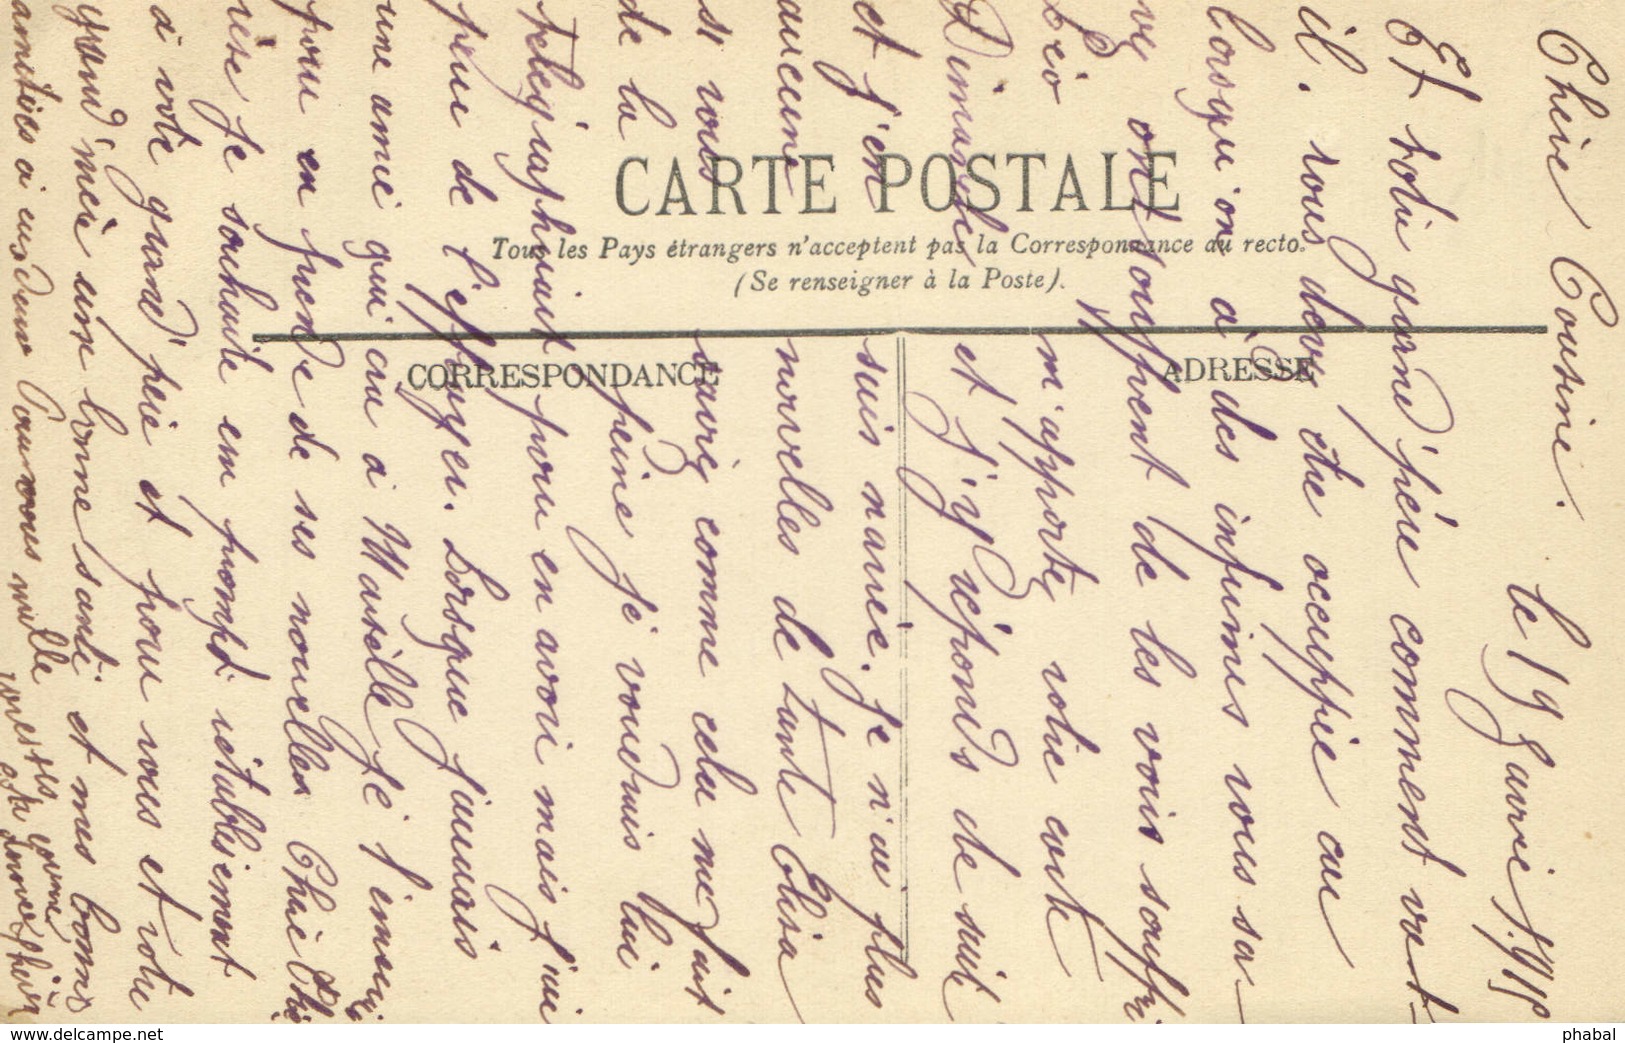 CARTE POSTALE
Tous les Pays étrangers n'acceptent pas la Correspondance au recto.
(Se renseigner à la Poste).
CORRESPONDANCE
ADRESSE
Chère Cousine.
le 19 Janvier 1915
Et votre grand'père comment va t-
il. vous devez être occupée car
lorsqu'on a des infirmes vous sa-
vez ont souffrent de les voir souffrir
Léo m'apporte votre carte
Dimanche et j'y réponds de suite
et j'en suis navrée. je n'ai plus
aucune nouvelles de tante Elisa
si vous saviez comme cela me fait
de la peine je voudrais lui
télégraphier pour en avoir mais j'ai
peur de l'effrayer. Lorsque j'aurais
une amie qui ira à Marseille je l'enverrai
pour en prendre de ses nouvelles Chère
je souhaite un prompt rétablissement
à votre grand'père et pour vous et votre
grand'mère une bonne santé et mes bonnes
amitiés à vos deux Pour vous mille